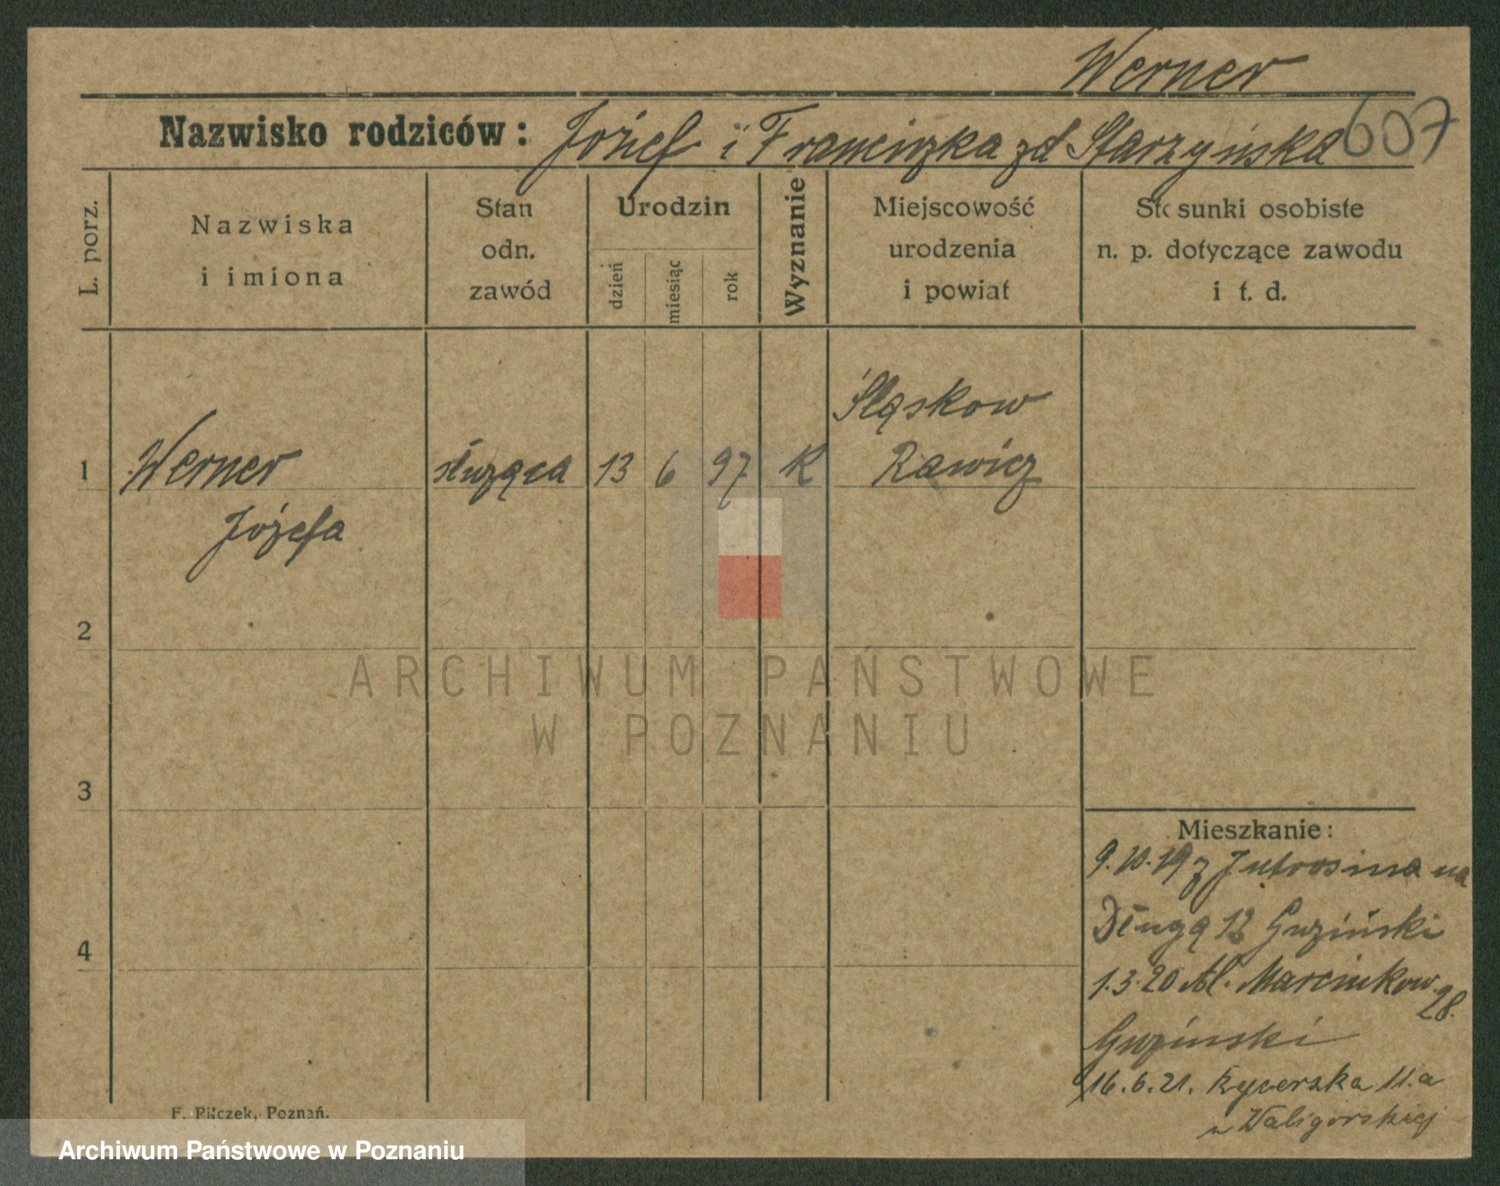 Werner
Nazwisko rodziców: Józef i Franciszka zd Starzyńska 607
L. porz.
Nazwiska
i imiona
Stan
odn.
zawód
Urodzin
dzień
miesiąc
rok
Wyznanie
Miejscowość
urodzenia
i powiat
Stosunki osobiste
n. p. dotyczące zawodu
i t. d.
Śląskow
1 Werner służąca 13 6 97 K Rawicz
Józefa
2
ARCHIWUM PAŃSTWOWE
W POZNANIU
3
Mieszkanie:
9.10.19 z Jutrosina na
Długą 12 Guziński
4
1.3.20 Al. Marcinkow. 28.
Guzinski
16.6.21. Rycerska 11.a
u Waligórskiej
F. Pilczek, Poznań.
Archiwum Państwowe w Poznaniu